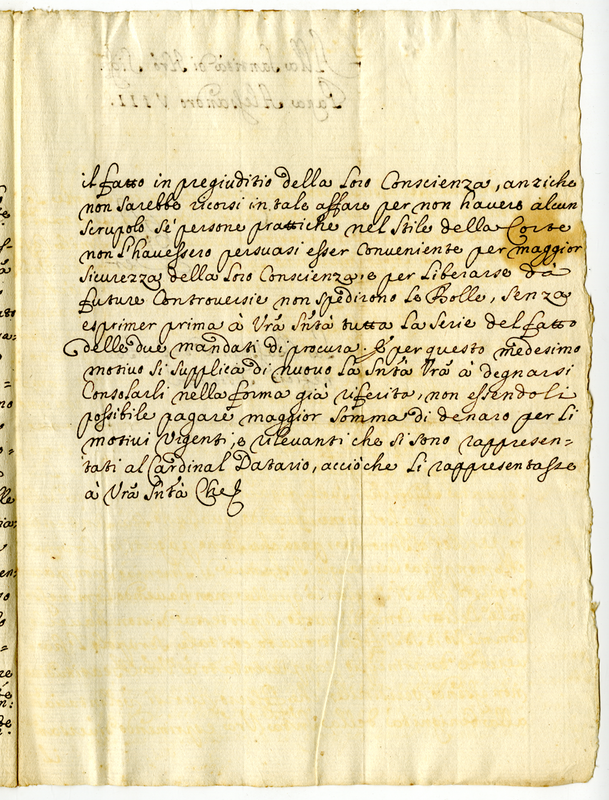 il fatto in pregiuditio della loro Conscienza, anziche
non sarebbe ricorsi in tale affare per non havere alcun
scrupolo se persone prattiche nel stile della Corte
non l'havessero persuasi esser conveniente per maggior
sicurezza della loro Conscienza, e per liberarse da
future Controversie non spedirono le Bolle, senza
esprimer prima à Vrã Sntà tutta la serie del fatto
delle due mandati di procura. E per questo medesimo
motivo si supplica di nuovo la Sntà Vrã à degnarsi
Consolarli nella forma già riferita, non essendoli
possibile pagare maggior somma di denaro per li
motivi Urgenti, e rilevanti che si sono rappresen=
tati al Cardinal Datario, acciò che li rappresentasse
à Vrã Sntà Che